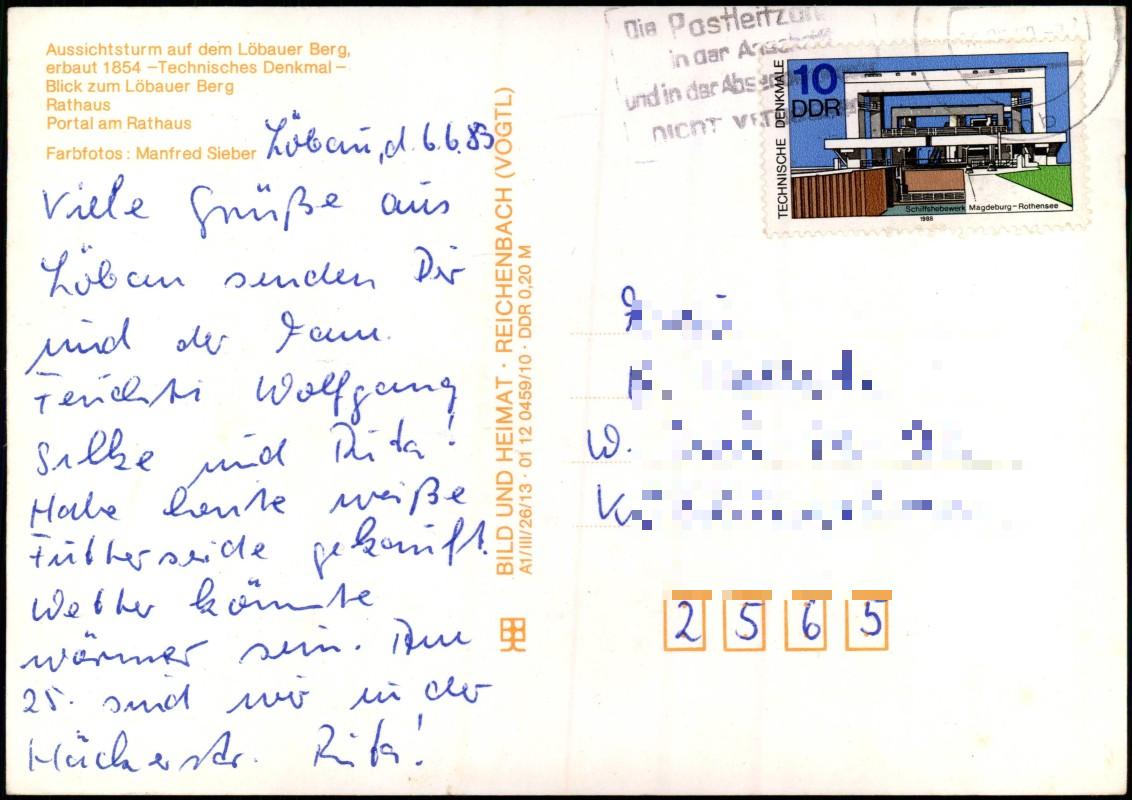 Aussichtsturm auf dem Löbauer Berg,
erbaut 1854 –Technisches Denkmal–
Blick zum Löbauer Berg
Rathaus
Portal am Rathaus
Farbfotos: Manfred Sieber
Löbau, d. 6.6.89
Viele Grüße aus
Löbau senden Dir
und der Fam.
Wolfgang
Silke und Rita!
Habe heute weiße
Futterseide gekauft.
Wetter könnte
wärmer sein. Am
25. sind wir in der
Rita!
BILD UND HEIMAT · REICHENBACH (VOGTL)
A1/III/26/13 · 01 12 0459/10 · DDR 0,20 M
Die Postleitzahl
in der
und in der
NICHT
TECHNISCHE DENKMALE
10
DDR
Schiffshebewerk Magdeburg-Rothensee
1988
W.
2 5 6 5